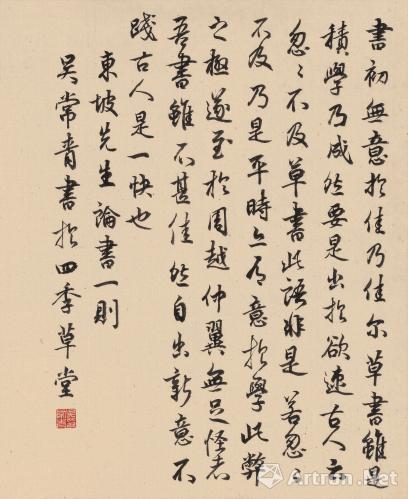 書初無意於佳乃佳尔草書雖是
積學乃成然要是出於欲速古人云
忽〻不及草書此語非是若忽〻
不及乃是平時亦有意於學此弊
之極遂至於周越仲翼無足怪者
吾書雖不甚佳然自出新意不
踐古人是一快也
東坡先生論書一則
吴常青書於四季草堂
Artron.Net